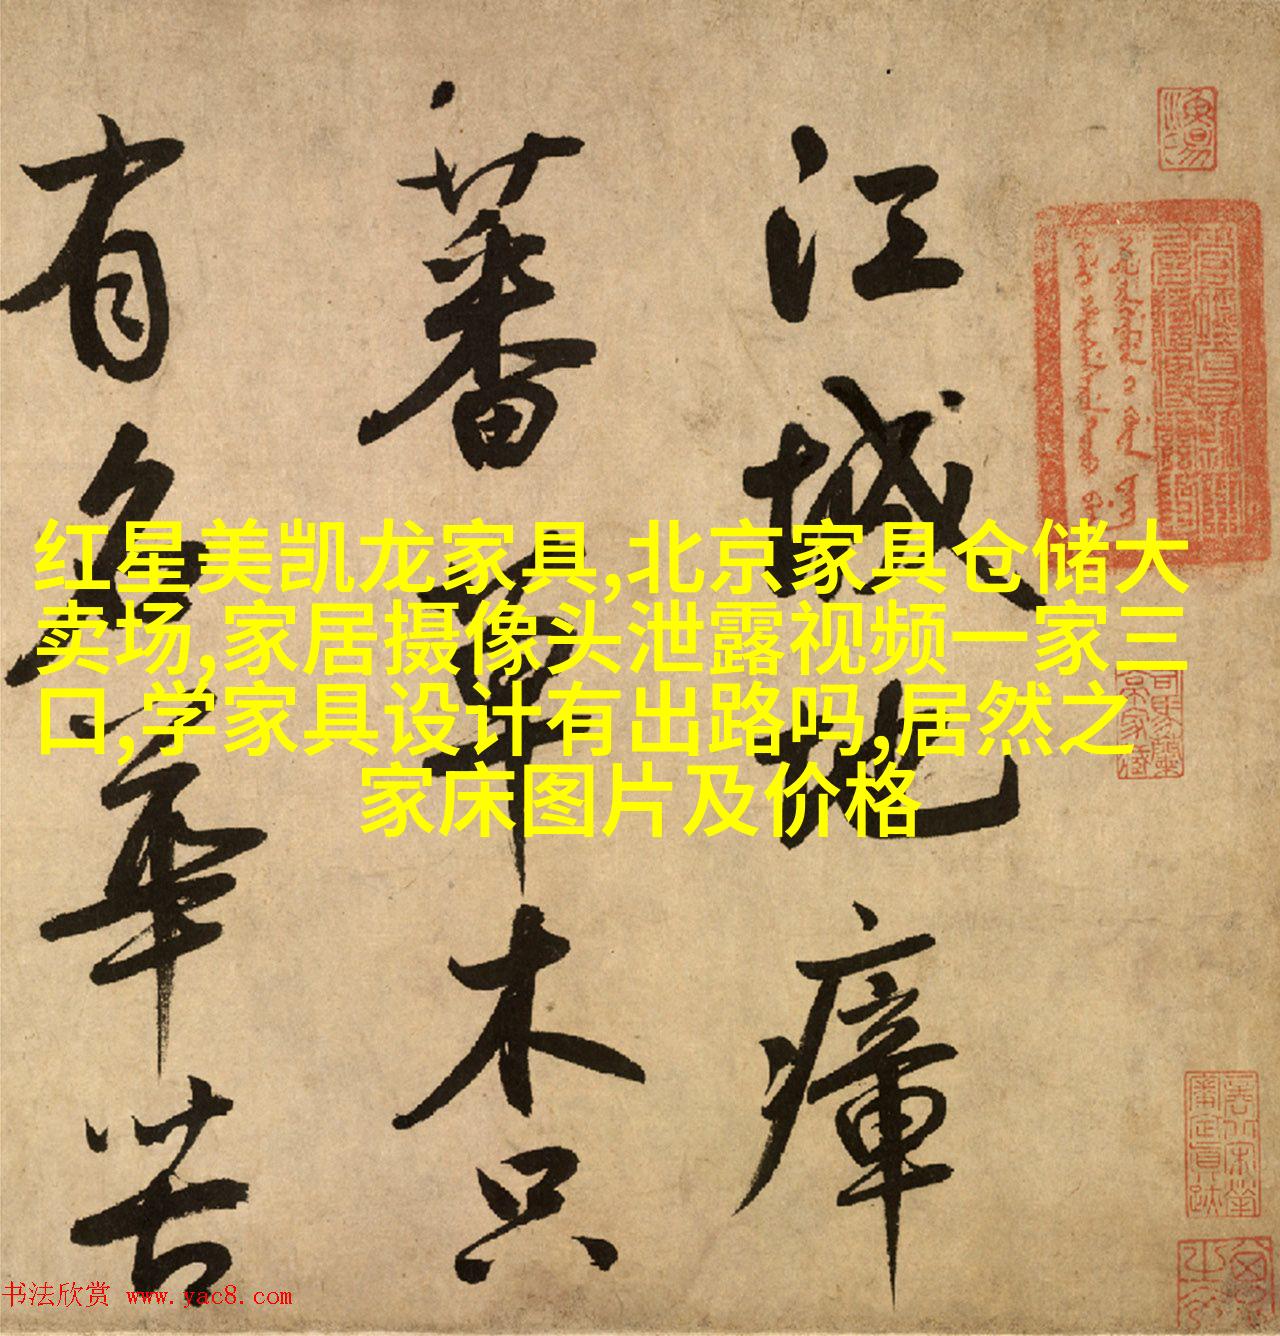 江城地瘴
蕃草木只
有名華苦
红星美凯龙家具,北京家具仓储大
卖场,家居摄像头泄露视频一家三
口,学家具设计有出路吗,居然之
家床图片及价格
书法欣赏 www.yac8.com